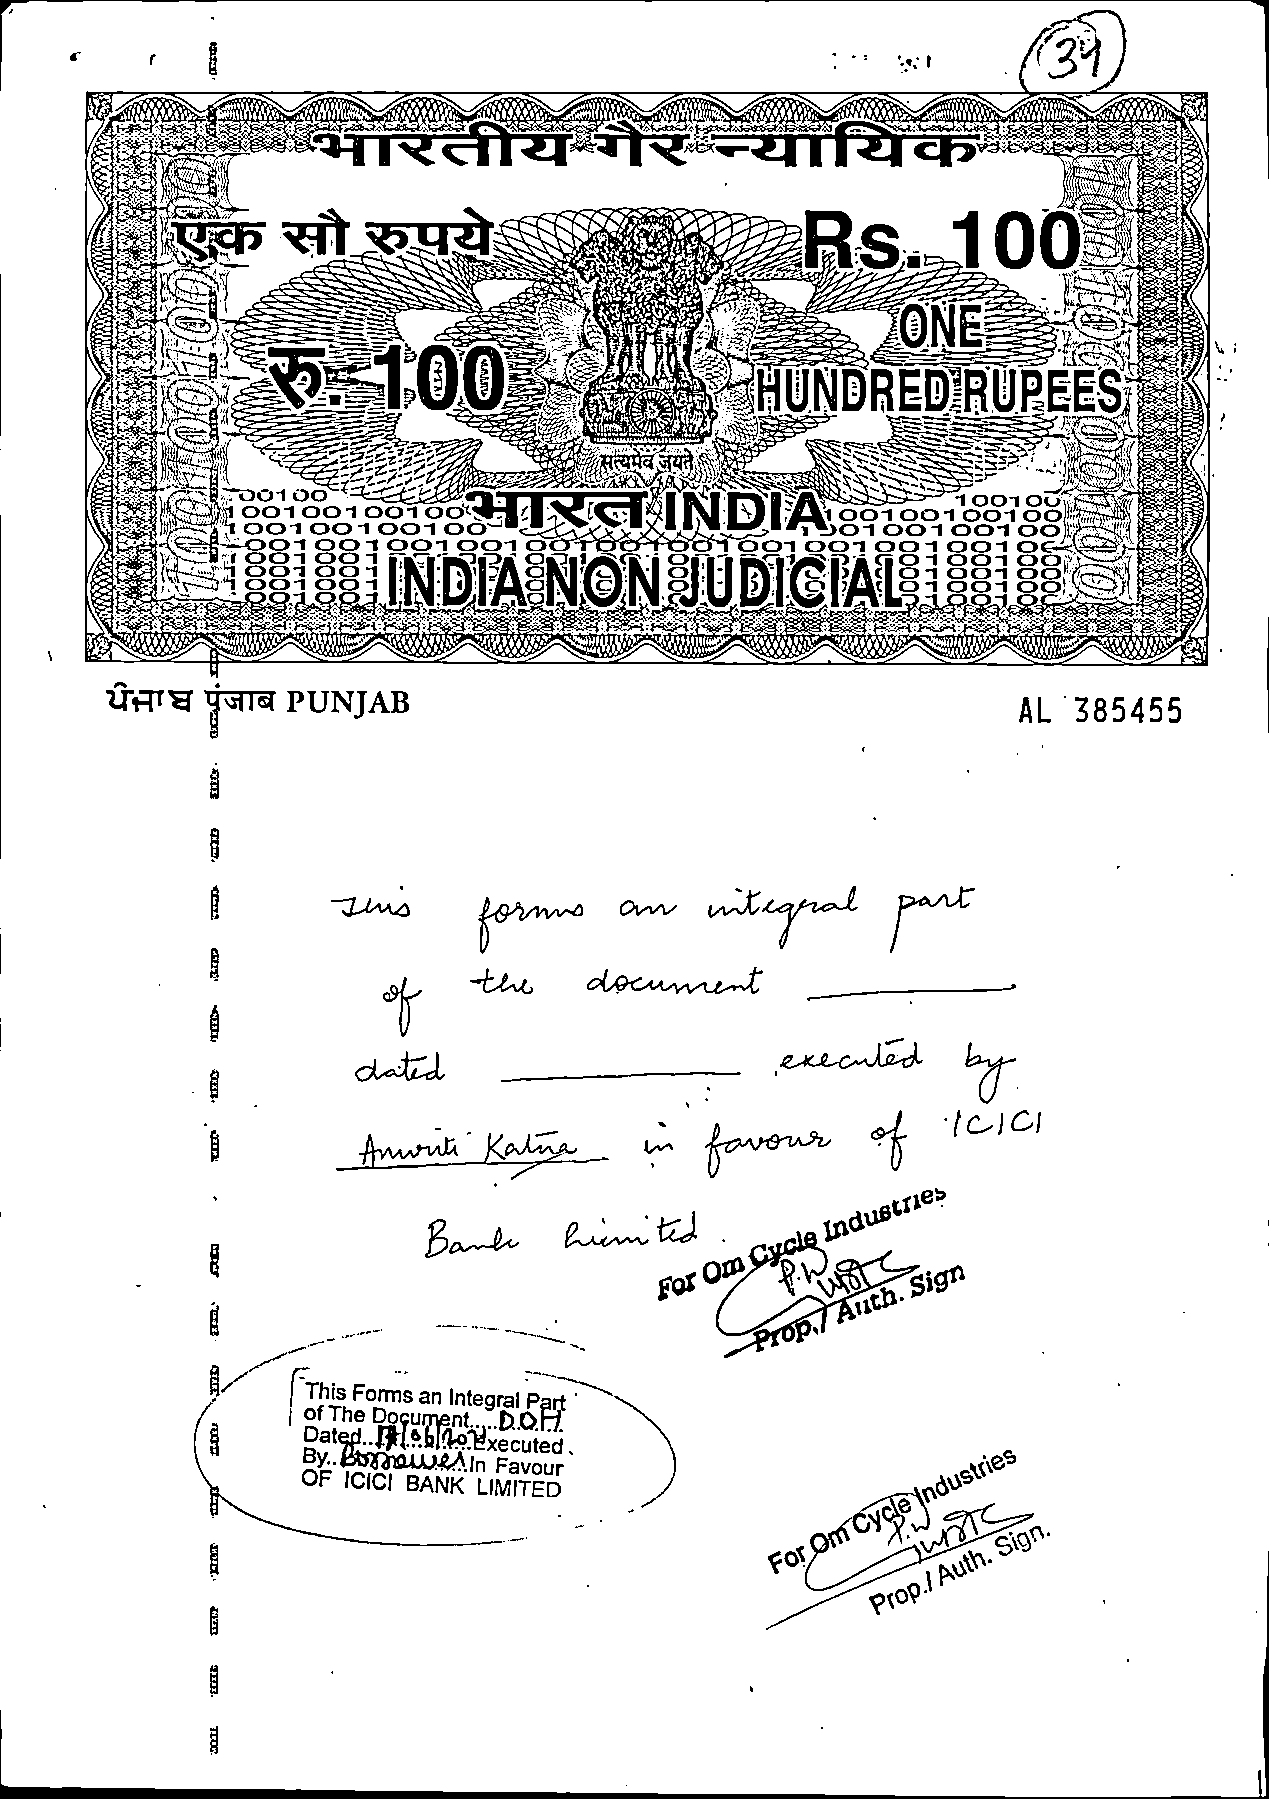 34
भारतीय गैर न्यायिक
एक सौ रुपये
Rs. 100
रु. 100
ONE
HUNDRED RUPEES
सत्यमेव जयते
भारत INDIA
INDIA NON JUDICIAL
ਪੰਜਾਬ पंजाब PUNJAB
AL 385455
This forms an integral part
of the document ________
dated ________ executed by
Amriti Katna in favour of ICICI
Bank Limited.
For Om Cycle Industries
Prop./ Auth. Sign
This Forms an Integral Part
of The Document.....D.O.H
Dated..17/06/2021 Executed
By..Borrower..In Favour
OF ICICI BANK LIMITED
For Om Cycle Industries
Prop./ Auth. Sign.